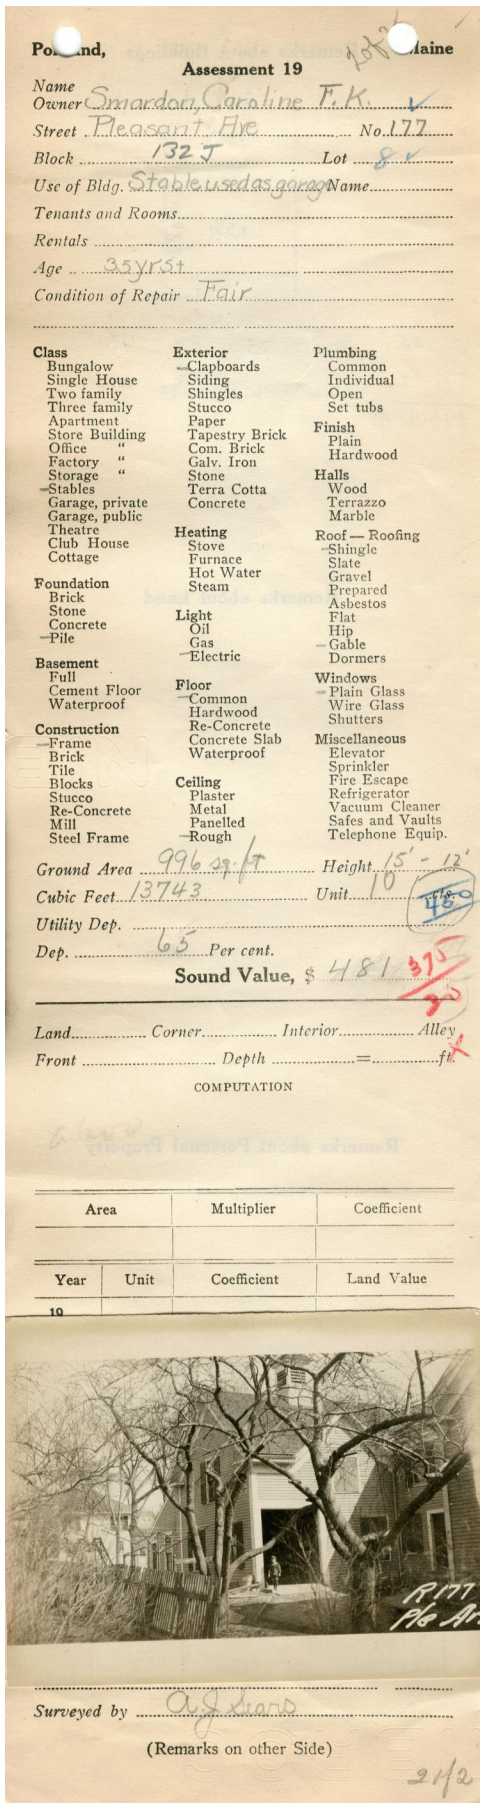 Portland, Maine
2 of 2
Assessment 19
Name
Owner Smardon, Caroline F. K. ✓
Street Pleasant Ave No. 177
Block 132 J Lot 8 ✓
Use of Bldg. Stable used as garage Name
Tenants and Rooms
Rentals
Age 35 yrs +
Condition of Repair Fair
Class
Bungalow
Single House
Two family
Three family
Apartment
Store Building
Office "
Factory "
Storage "
Stables
Garage, private
Garage, public
Theatre
Club House
Cottage
Foundation
Brick
Stone
Concrete
Pile
Basement
Full
Cement Floor
Waterproof
Construction
Frame
Brick
Tile
Blocks
Stucco
Re-Concrete
Mill
Steel Frame
Exterior
Clapboards
Siding
Shingles
Stucco
Paper
Tapestry Brick
Com. Brick
Galv. Iron
Stone
Terra Cotta
Concrete
Heating
Stove
Furnace
Hot Water
Steam
Light
Oil
Gas
Electric
Floor
Common
Hardwood
Re-Concrete
Concrete Slab
Waterproof
Ceiling
Plaster
Metal
Panelled
Rough
Plumbing
Common
Individual
Open
Set tubs
Finish
Plain
Hardwood
Halls
Wood
Terrazzo
Marble
Roof — Roofing
Shingle
Slate
Gravel
Prepared
Asbestos
Flat
Hip
Gable
Dormers
Windows
Plain Glass
Wire Glass
Shutters
Miscellaneous
Elevator
Sprinkler
Fire Escape
Refrigerator
Vacuum Cleaner
Safes and Vaults
Telephone Equip.
Ground Area 996 sq. ft Height 15' - 12'
Cubic Feet 13743 Unit 10 cts.
480
Utility Dep.
Dep. 65 Per cent.
Sound Value, $ 481
375
Land Corner Interior Alley
Front Depth = ft.
COMPUTATION
Area Multiplier Coefficient
Year Unit Coefficient Land Value
19
R 177
Ple Av.
Surveyed by A J Sears
(Remarks on other Side)
2 of 2